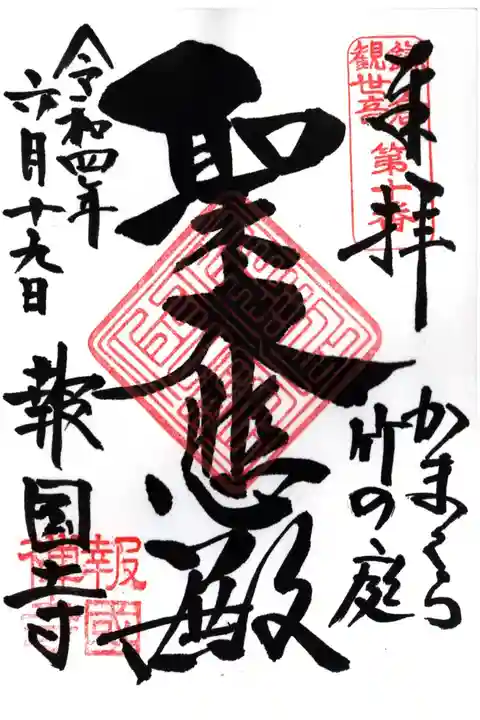 鎌倉
観世音 第十番
来拝
かまくら
竹の庭
聖大悲殿
令和四年
六月十九日
報国寺
報國
禅寺